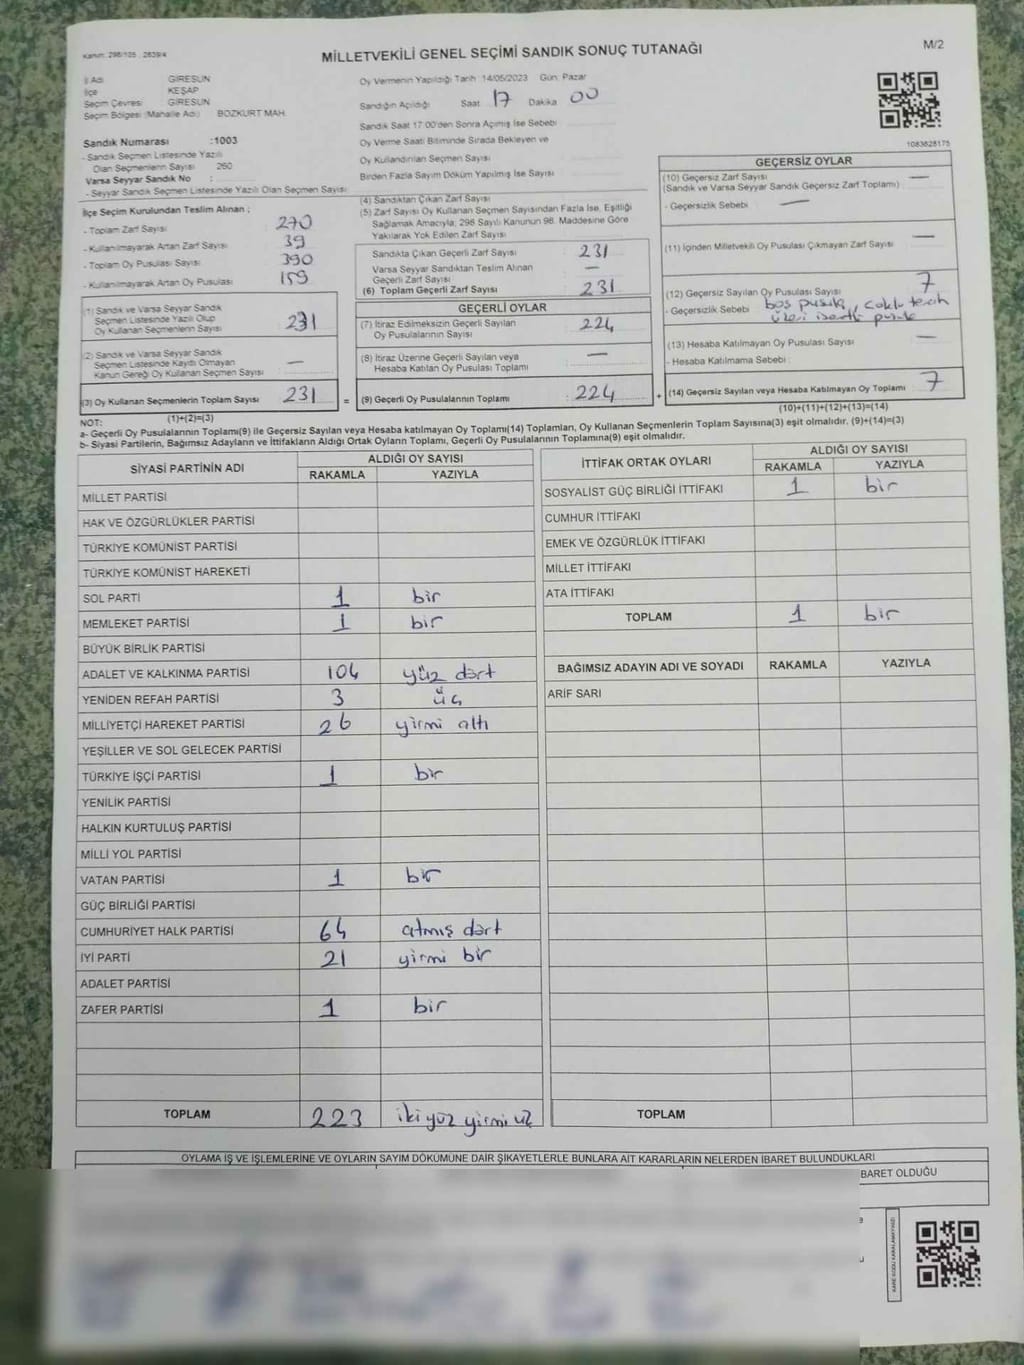 Kanun: 298/105 : 2839/4
MİLLETVEKİLİ GENEL SEÇİMİ SANDIK SONUÇ TUTANAĞI
M/2
İl Adı GİRESUN
İlçe KEŞAP
Seçim Çevresi GİRESUN
Seçim Bölgesi (Mahalle Adı) BOZKURT MAH.
Oy Vermenin Yapıldığı Tarih 14/05/2023 Gün: Pazar
Sandığın Açıldığı Saat 17 Dakika 00
Sandık Saat 17:00'den Sonra Açılmış İse Sebebi
Oy Verme Saati Bitiminde Sırada Bekleyen ve
Oy Kullandırılan Seçmen Sayısı
Birden Fazla Sayım Döküm Yapılmış İse Sayısı
1083628175
Sandık Numarası :1003
- Sandık Seçmen Listesinde Yazılı
Olan Seçmenlerin Sayısı 260
Varsa Seyyar Sandık No :
- Seyyar Sandık Seçmen Listesinde Yazılı Olan Seçmen Sayısı
İlçe Seçim Kurulundan Teslim Alınan ;
- Toplam Zarf Sayısı 270
- Kullanılmayarak Artan Zarf Sayısı 39
- Toplam Oy Pusulası Sayısı 390
- Kullanılmayarak Artan Oy Pusulası 159
(1) Sandık ve Varsa Seyyar Sandık
Seçmen Listesinde Yazılı Olup
Oy Kullanan Seçmenlerin Sayısı 231
(2) Sandık ve Varsa Seyyar Sandık
Seçmen Listesinde Kaydı Olmayan
Kanun Gereği Oy Kullanan Seçmen Sayısı —
(3) Oy Kullanan Seçmenlerin Toplam Sayısı 231 =
(1)+(2)=(3)
(4) Sandıktan Çıkan Zarf Sayısı
(5) Zarf Sayısı Oy Kullanan Seçmen Sayısından Fazla İse, Eşitliği
Sağlamak Amacıyla; 298 Sayılı Kanunun 98. Maddesine Göre
Yakılarak Yok Edilen Zarf Sayısı
Sandıkta Çıkan Geçerli Zarf Sayısı : 231
Varsa Seyyar Sandıktan Teslim Alınan
Geçerli Zarf Sayısı —
(6) Toplam Geçerli Zarf Sayısı : 231
GEÇERLİ OYLAR
(7) İtiraz Edilmeksizin Geçerli Sayılan
Oy Pusulalarının Sayısı : 224
(8) İtiraz Üzerine Geçerli Sayılan veya
Hesaba Katılan Oy Pusulası Toplamı —
(9) Geçerli Oy Pusulalarının Toplamı : 224 +
GEÇERSİZ OYLAR
(10) Geçersiz Zarf Sayısı —
(Sandık ve Varsa Seyyar Sandık Geçersiz Zarf Toplamı)
- Geçersizlik Sebebi : —
(11) İçinden Milletvekili Oy Pusulası Çıkmayan Zarf Sayısı —
(12) Geçersiz Sayılan Oy Pusulası Sayısı 7
- Geçersizlik Sebebi boş pusula, çoklu tercih
üzeri işaretli pusula
(13) Hesaba Katılmayan Oy Pusulası Sayısı —
- Hesaba Katılmama Sebebi :
(14) Geçersiz Sayılan veya Hesaba Katılmayan Oy Toplamı 7
(10)+(11)+(12)+(13)=(14)
NOT:
a- Geçerli Oy Pusulalarının Toplamı(9) ile Geçersiz Sayılan veya Hesaba katılmayan Oy Toplamı(14) Toplamları, Oy Kullanan Seçmenlerin Toplam Sayısına(3) eşit olmalıdır. (9)+(14)=(3)
b- Siyasi Partilerin, Bağımsız Adayların ve İttifakların Aldığı Ortak Oyların Toplamı, Geçerli Oy Pusulalarının Toplamına(9) eşit olmalıdır.
SİYASİ PARTİNİN ADI ALDIĞI OY SAYISI
RAKAMLA YAZIYLA
MİLLET PARTİSİ
HAK VE ÖZGÜRLÜKLER PARTİSİ
TÜRKİYE KOMÜNİST PARTİSİ
TÜRKİYE KOMÜNİST HAREKETİ
SOL PARTİ 1 bir
MEMLEKET PARTİSİ 1 bir
BÜYÜK BİRLİK PARTİSİ
ADALET VE KALKINMA PARTİSİ 104 yüz dört
YENİDEN REFAH PARTİSİ 3 üç
MİLLİYETÇİ HAREKET PARTİSİ 26 yirmi altı
YEŞİLLER VE SOL GELECEK PARTİSİ
TÜRKİYE İŞÇİ PARTİSİ 1 bir
YENİLİK PARTİSİ
HALKIN KURTULUŞ PARTİSİ
MİLLİ YOL PARTİSİ
VATAN PARTİSİ 1 bir
GÜÇ BİRLİĞİ PARTİSİ
CUMHURİYET HALK PARTİSİ 64 atmış dört
İYİ PARTİ 21 yirmi bir
ADALET PARTİSİ
ZAFER PARTİSİ 1 bir
TOPLAM 223 iki yüz yirmi üç
İTTİFAK ORTAK OYLARI ALDIĞI OY SAYISI
RAKAMLA YAZIYLA
SOSYALİST GÜÇ BİRLİĞİ İTTİFAKI 1 bir
CUMHUR İTTİFAKI
EMEK VE ÖZGÜRLÜK İTTİFAKI
MİLLET İTTİFAKI
ATA İTTİFAKI
TOPLAM 1 bir
BAĞIMSIZ ADAYIN ADI VE SOYADI RAKAMLA YAZIYLA
ARİF SARI
TOPLAM
OYLAMA İŞ VE İŞLEMLERİNE VE OYLARIN SAYIM DÖKÜMÜNE DAİR ŞİKAYETLERLE BUNLARA AİT KARARLARIN NELERDEN İBARET BULUNDUKLARI
BARET OLDUĞU
KARE KODU KARALAMAYINIZ!